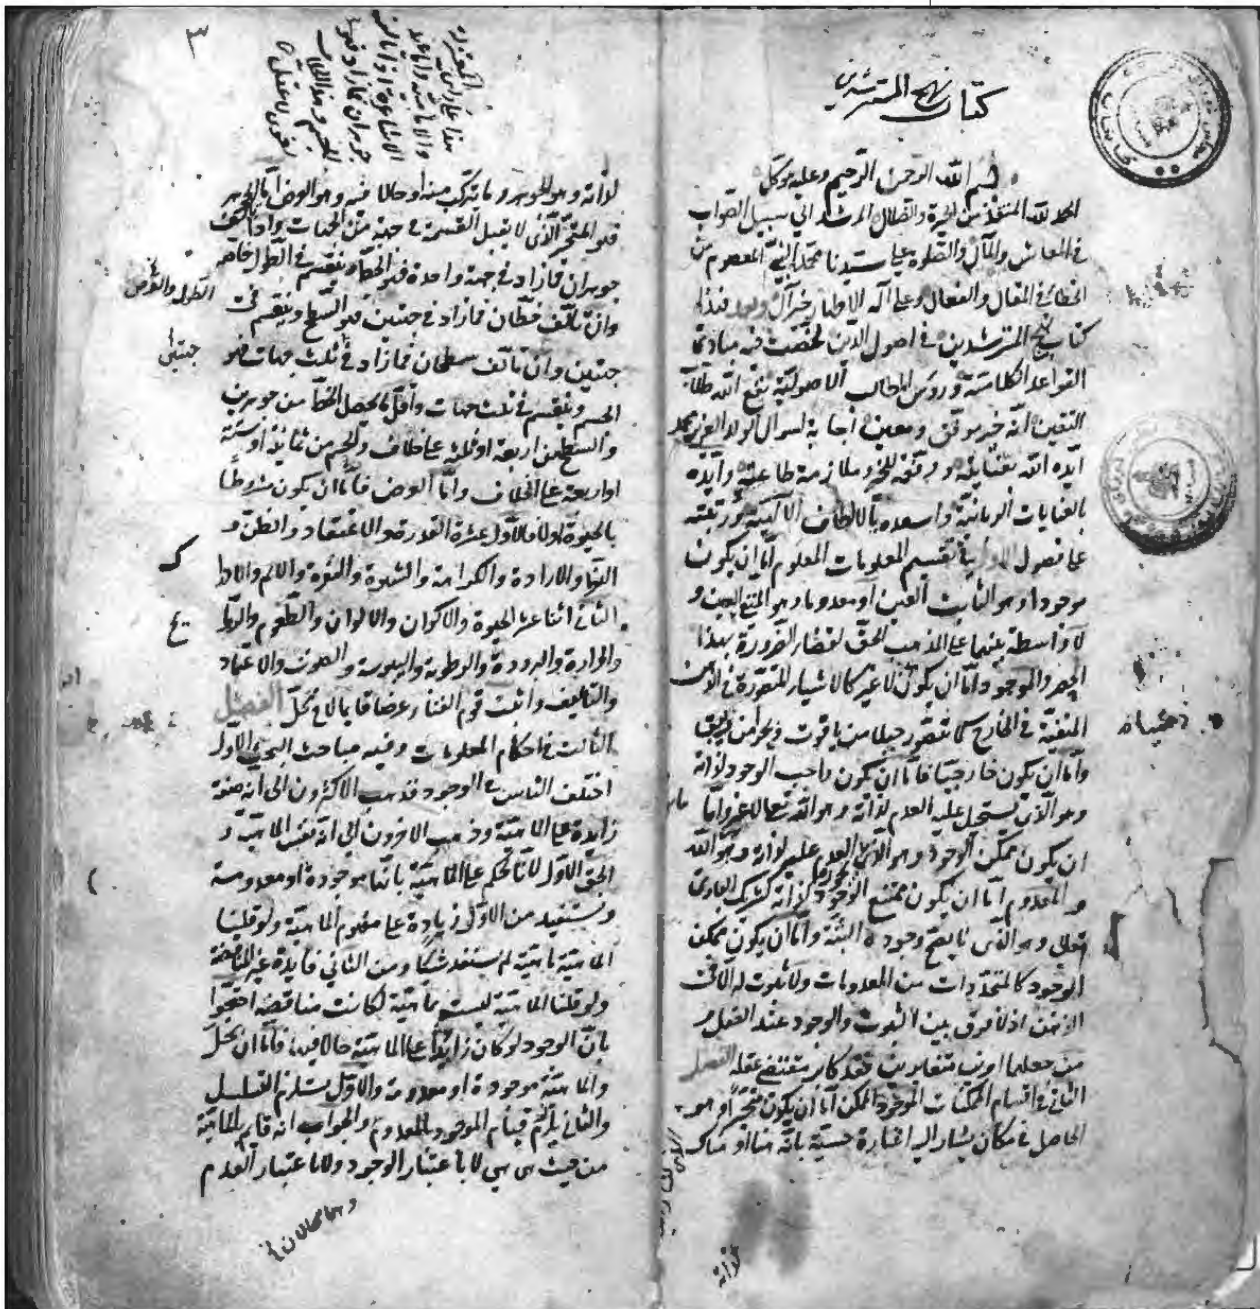 كتاب نهج المسترشدين
بسم الله الرحمن الرحيم وعليه توكل
الحمد لله المنقذ من الحيرة والضلال المرشد الى سبيل الصواب
في المعاش والمآل والصلوة على سيدنا محمد النبي المعصوم من
الخطاء في المقال والفعال وعلى آله الاطهار خير آل وبعد فهذا
كتاب نهج المسترشدين في اصول الدين لخصت فيه مبادئ
القواعد الكلامية ورؤس المطالب الاصولية نفع الله طلاب
اليقين انه خير موفق ومعين اجابة لسوال الولد العزيز محمد
ايده الله بعنايته ووفقه للخير وملازمة طاعته وأيده
بالعنايات الربانية واسعده بالالطاف الالهية ورتبته
على فصول الاول في تقسيم المعلومات المعلوم اما ان يكون
موجودا وهو الثابت العين او معدوما وهو المنفي العين و
لا واسطة بينهما على المذهب الحق لقضاء الضرورة بهذا
الحصر والموجود اما ان يكون ذهنيا لا غير كالاشياء المتصورة في الذهن
المنفية في الخارج كما نتصور جبلا من ياقوت وبحرا من زيبق
واما ان يكون خارجيا فاما ان يكون واجب الوجود لذاته
وهو الذي يستحيل عليه العدم لذاته وهو الله تعالى لا غير واما
ان يكون ممكن الوجود وهو الذي يجوز العدم عليه لذاته وهو ما عدا الله
والمعدوم اما ان يكون ممتنع الوجود لذاته كشريك الباري
تعالى وهو الذي لا يصح وجوده البتة واما ان يكون ممكن
الوجود كالمتجددات من المعدومات ولا ثبوت له الا في
الذهن اذ لا فرق بين الثبوت والوجود عند العقل و
من جعلهما امرين متغايرين فقد كابر مقتضى عقله الفصل
الثاني في اقسام الممكنات الموجود الممكن اما ان يكون متحيزا وهو
الحاصل في مكان يشار اليه اشارة حسية بانه هنا او هناك
لذاته
ذهنيا
٣
لذاته وهو الجوهر وما تركب منه او حالا فيه وهو العرض اما الجوهر
فهو المتحيز الذي لا يقبل القسمة في جهة من الجهات واذا تألف
جوهران فما زاد في جهة واحدة فهو الخط وينقسم في الطول خاصة
وان تألف خطان فما زاد في جهتين فهو السطح وينقسم في
جهتين وان تألف سطحان فما زاد في ثلث جهات فهو
الجسم وينقسم في ثلث جهات واقل ما يحصل الخط من جوهرين
والسطح من اربعة او ثلثة على خلاف والجسم من ثمانية او ستة
او اربعة على الخلاف واما العرض فاما ان يكون مشروطا
بالحيوة اولا فالاول عشرة القدرة والاعتقاد والظن و
النظر والارادة والكراهة والشهوة والنفرة والالم والادراك
الثاني اثنا عشر الحيوة والاكوان والالوان والطعوم والروائح
والحرارة والبرودة والرطوبة واليبوسة والصوت والاعتماد
والتاليف واثبت قوم الفناء عرضا قائما لا في محل الفصل
الثالث في احكام المعلومات وفيه مباحث البحث الاول
اختلف الناس في الوجود فذهب الاكثرون الى انه صفة
زايدة على الماهية وذهب الاخرون الى انه نفس الماهية و
الحق الاول لانا نحكم على الماهية بانها موجودة او معدومة
ونستفيد من الاول زيادة على مفهوم الماهية ولو قلنا
الماهية ماهية لم نستفد شيئا ومن الثاني فايدة غير المناقضة
ولو قلنا الماهية ليست ماهية لكانت مناقضة احتجوا
بان الوجود لو كان زايدا على الماهية حالا فيها فاما ان تحل
والماهية موجودة او معدومة والاول يستلزم التسلسل
والثاني يلزم قيام الموجود بالمعدوم والجواب انه قايم بالماهية
من حيث هي هي لا باعتبار الوجود ولا باعتبار العدم
وهما محالان
الطول والعرض